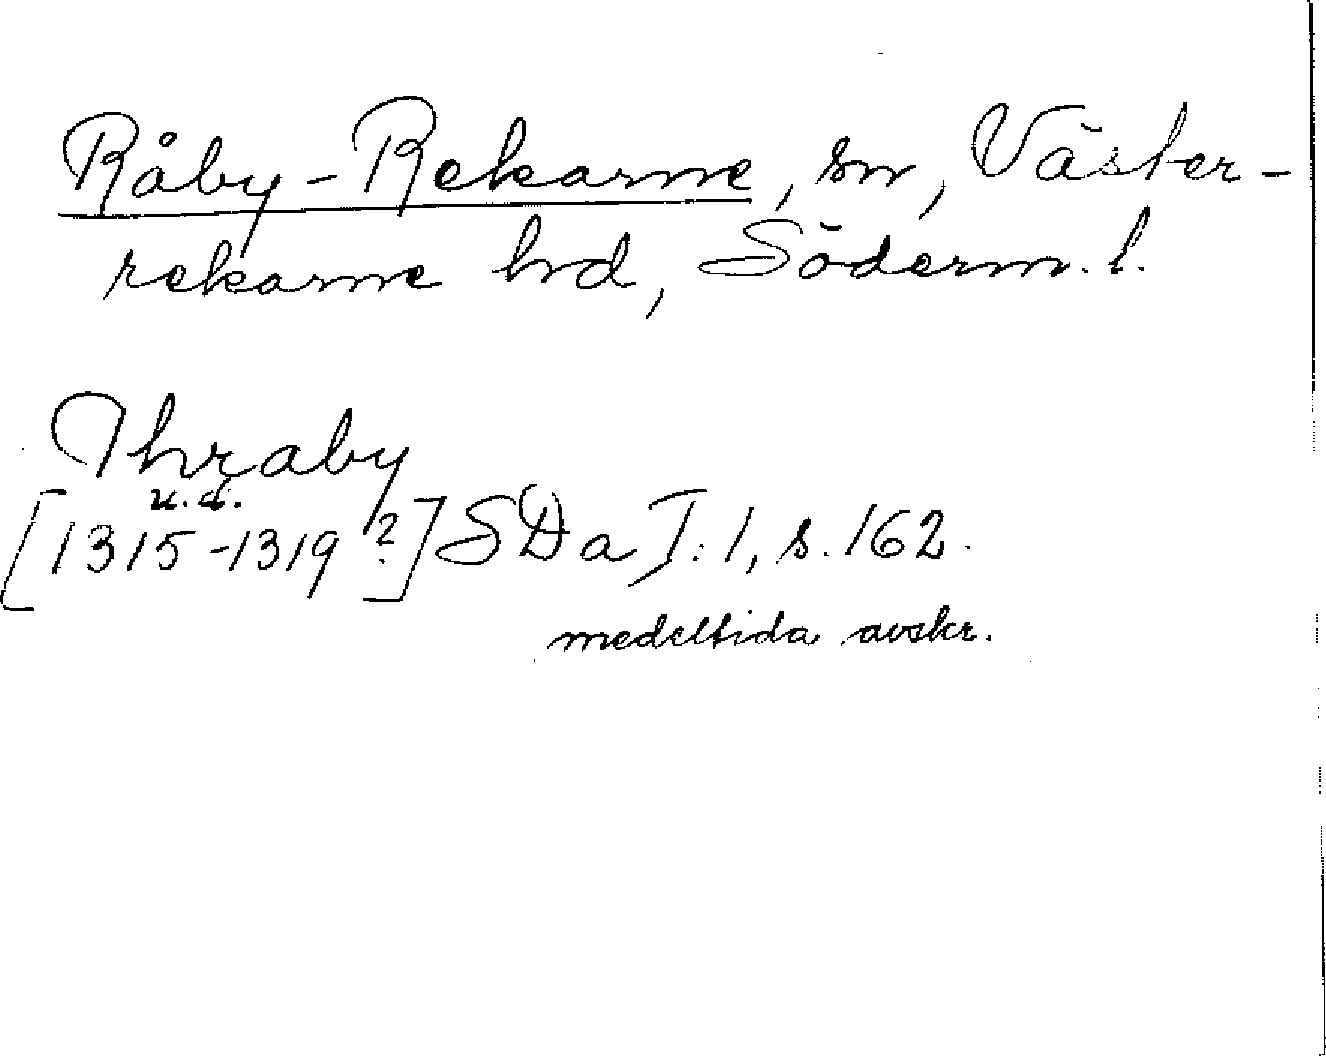 Råby-Rekarne, sn, Väster-
rekarne hd, Söderm. l.
Thraby
u. d.
[1315-1319?] SDa I:1, s. 162.
medeltida avskr.